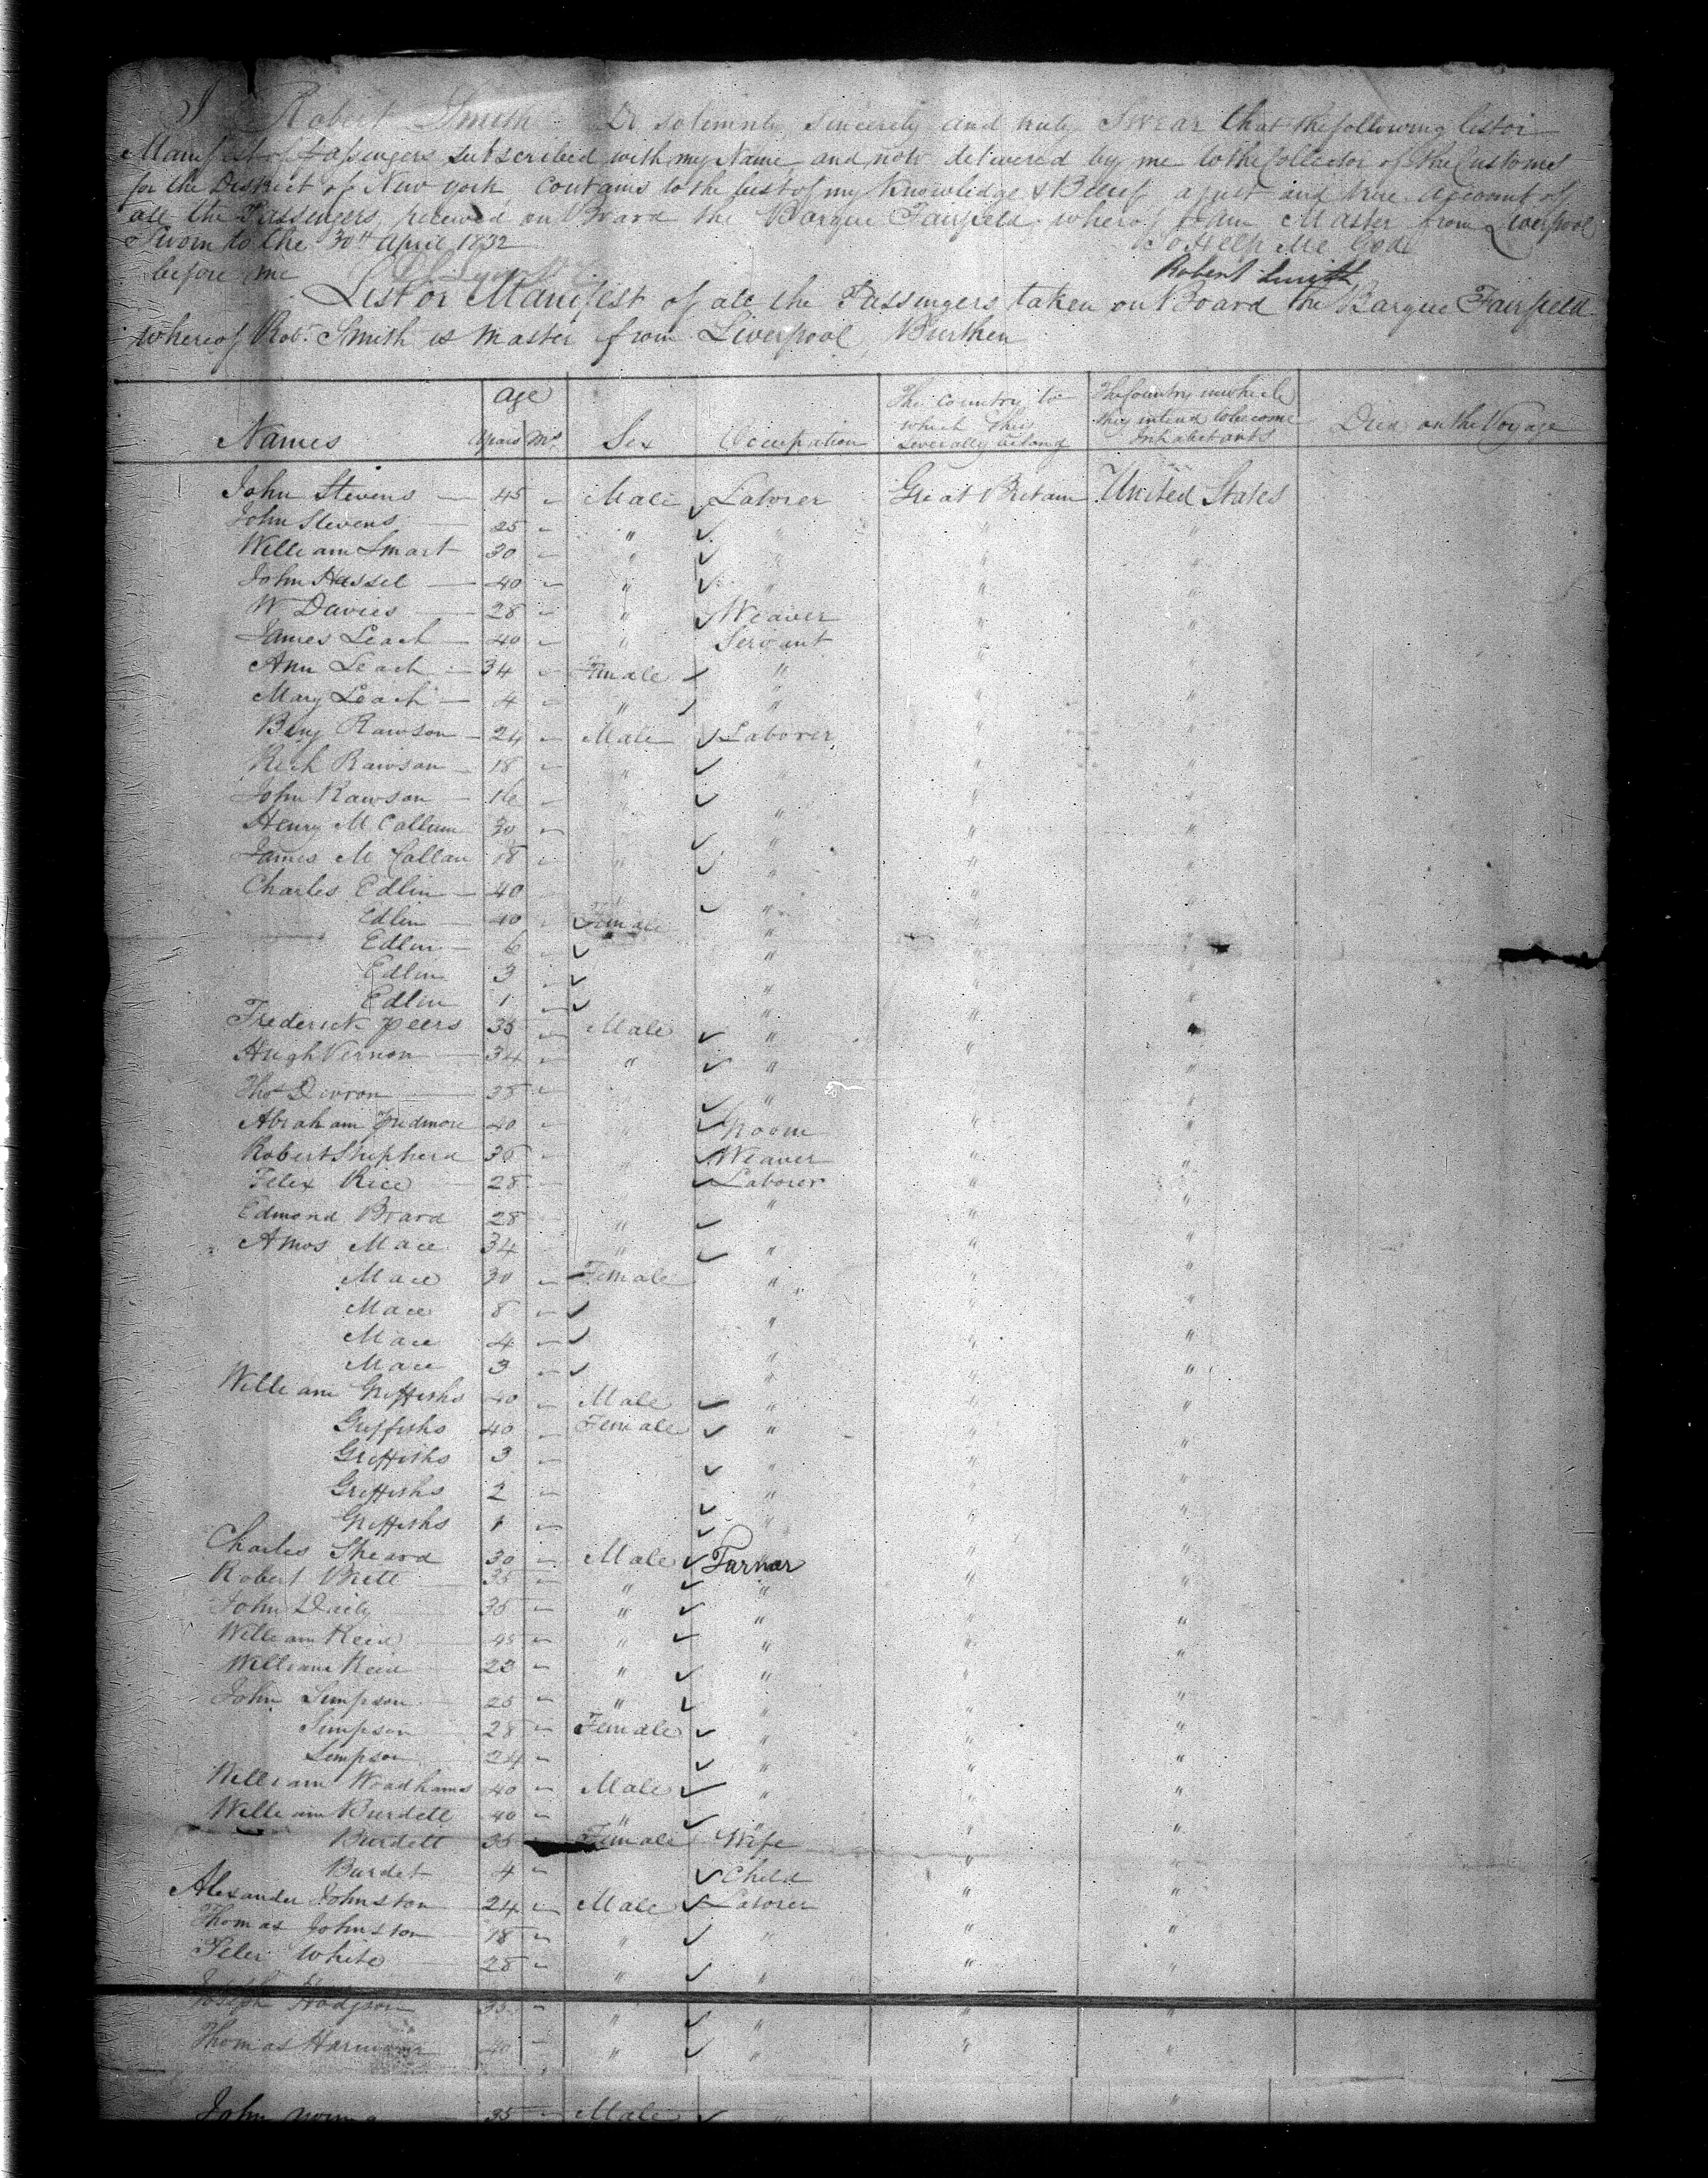 I Robert Smith Do solemnly, sincerely and truly Swear that the following List or
Manifest of Passengers subscribed with my Name and now delivered by me to the Collector of the Customs
for the District of New york contains to the best of my Knowledge & Belief a just and true account of
all the Passengers received on Board the Barque Fairfield whereof I am Master from Liverpool
Sworn to the 30th April 1832 So Help Me God
before me Robert Smith
List or Manifest of all the Passengers taken on Board the Barque Fairfield
whereof Robt. Smith is Master from Liverpool Burthen
Names Age Years Ms. Sex Occupation The country to which they severally belong The Country in which they intend to become Inhabitants Died on the Voyage
John Stevens 45 Male Laborer Great Britain United States
John Stevens 25 " " " "
William Smart 30 " " " "
John Hassel 40 " " " "
W Davies 28 " Weaver " "
James Leach 40 " Servant "
Ann Leach 34 Female "
Mary Leach 4 " " " "
Benj Rawson 24 Male Laborer " "
Rich Rawson 18 " " " "
John Rawson 16 " " "
Henry McCallum 30 " " "
James McCallan 18 " " " "
Charles Edlin 40 " " "
Edlin 10 Female " "
Edlin 6 " "
Edlin 3 " "
Edlin 1 " " "
Frederick Peers 35 Male " " "
Hugh Vernon 34 " " " "
Thos Divron 38 " "
Abraham 40 " Groom " "
Robert Shepherd 36 " Weaver " "
Felix Rice 28 Laborer " "
Edmond Board 28 " " " "
Amos Mace 34 " " " "
Mace 30 Female " " "
Mace 8 " " "
Mace 4 " "
Mace 3 " " "
William Griffiths 40 Male " " "
Griffiths 40 Female " " "
Griffiths 3 " " "
Griffiths 2 " " "
Griffiths 1 " " "
Charles Sheard 30 Male Farmer " "
Robert 35 " " " "
John Daily 35 " " " "
William Reid 45 " " " "
William Reid 23 " " "
John Simpson 25 " " " "
Simpson 28 Female " " "
Simpson 24 " " "
William Woodhams 40 Male " " "
William Burdett 40 " " " "
Burdett 35 Female Wife " "
Burdet 4 Child " "
Alexander Johnston 24 Male Laborer " "
Thomas Johnston 18 " " " "
Peter White 28 " " " "
Joseph Hodgson 35 " " " "
Thomas 40 " " " "
John 35 Male " "